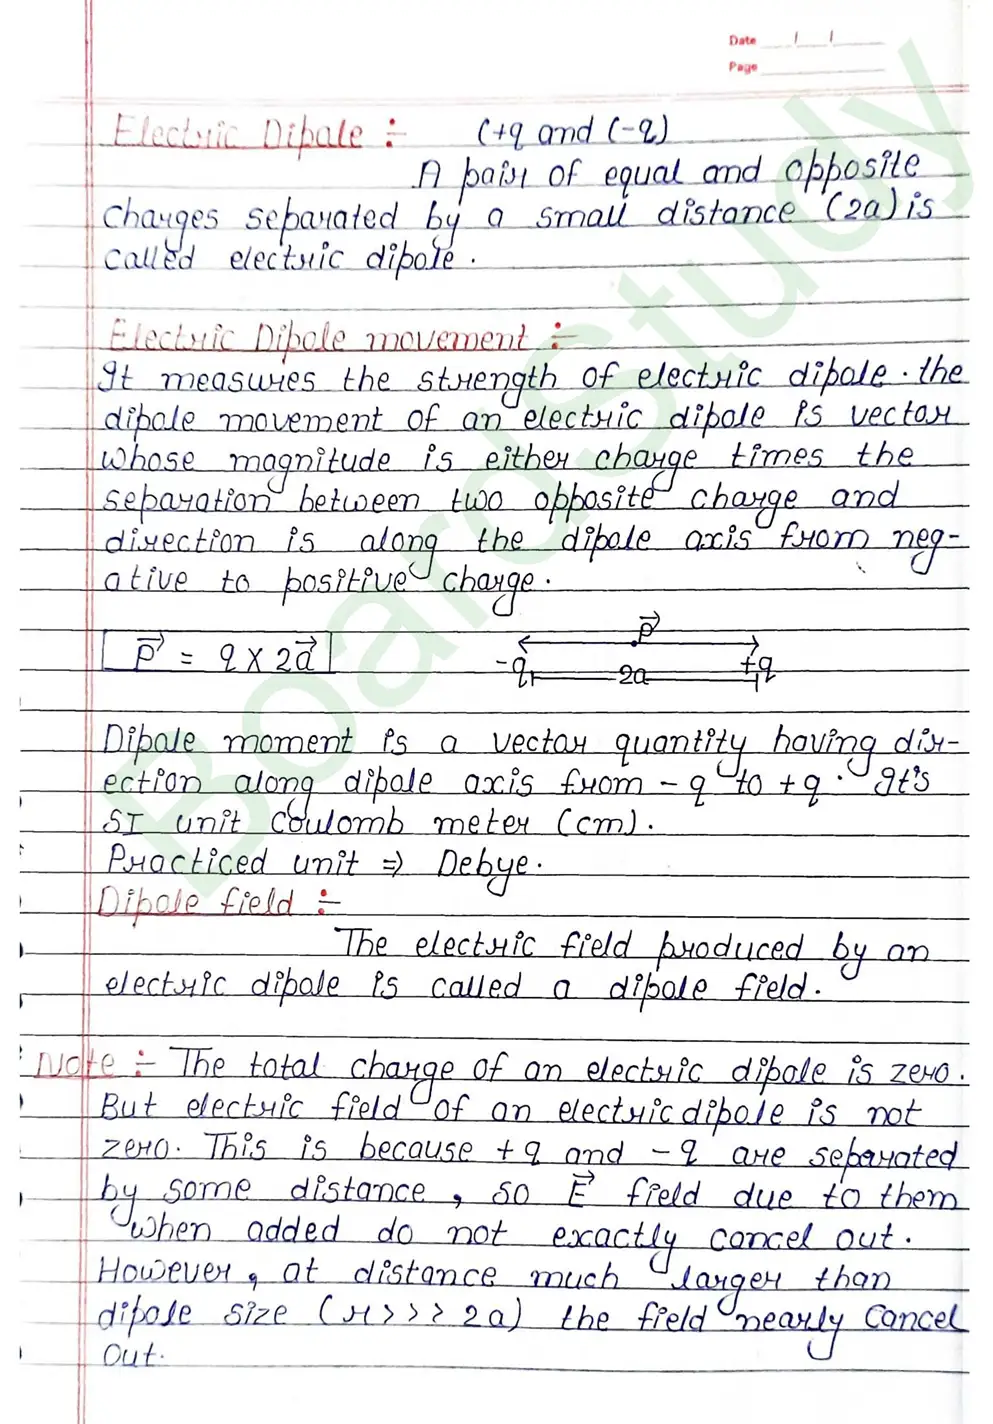 Date / /
Page
Electric Dipole :-
(+q and (-q)
A pair of equal and opposite
charges separated by a small distance (2a) is
called electric dipole.
Electric Dipole movement :-
It measures the strength of electric dipole. the
dipole movement of an electric dipole is vector
whose magnitude is either charge times the
separation between two opposite charge and
direction is along the dipole axis from neg-
ative to positive charge.
P⃗ = q × 2a⃗
P⃗
-q 2a +q
Dipole moment is a vector quantity having dir-
ection along dipole axis from -q to +q. It's
SI unit Coulomb meter (cm).
Practiced unit ⇒ Debye.
Dipole field :-
The electric field produced by an
electric dipole is called a dipole field.
Note :- The total charge of an electric dipole is zero.
But electric field of an electric dipole is not
zero. This is because +q and -q are separated
by some distance, so E⃗ field due to them
when added do not exactly cancel out.
However, at distance much larger than
dipole size (r>>> 2a) the field nearly Cancel
Out.
BoardStudy